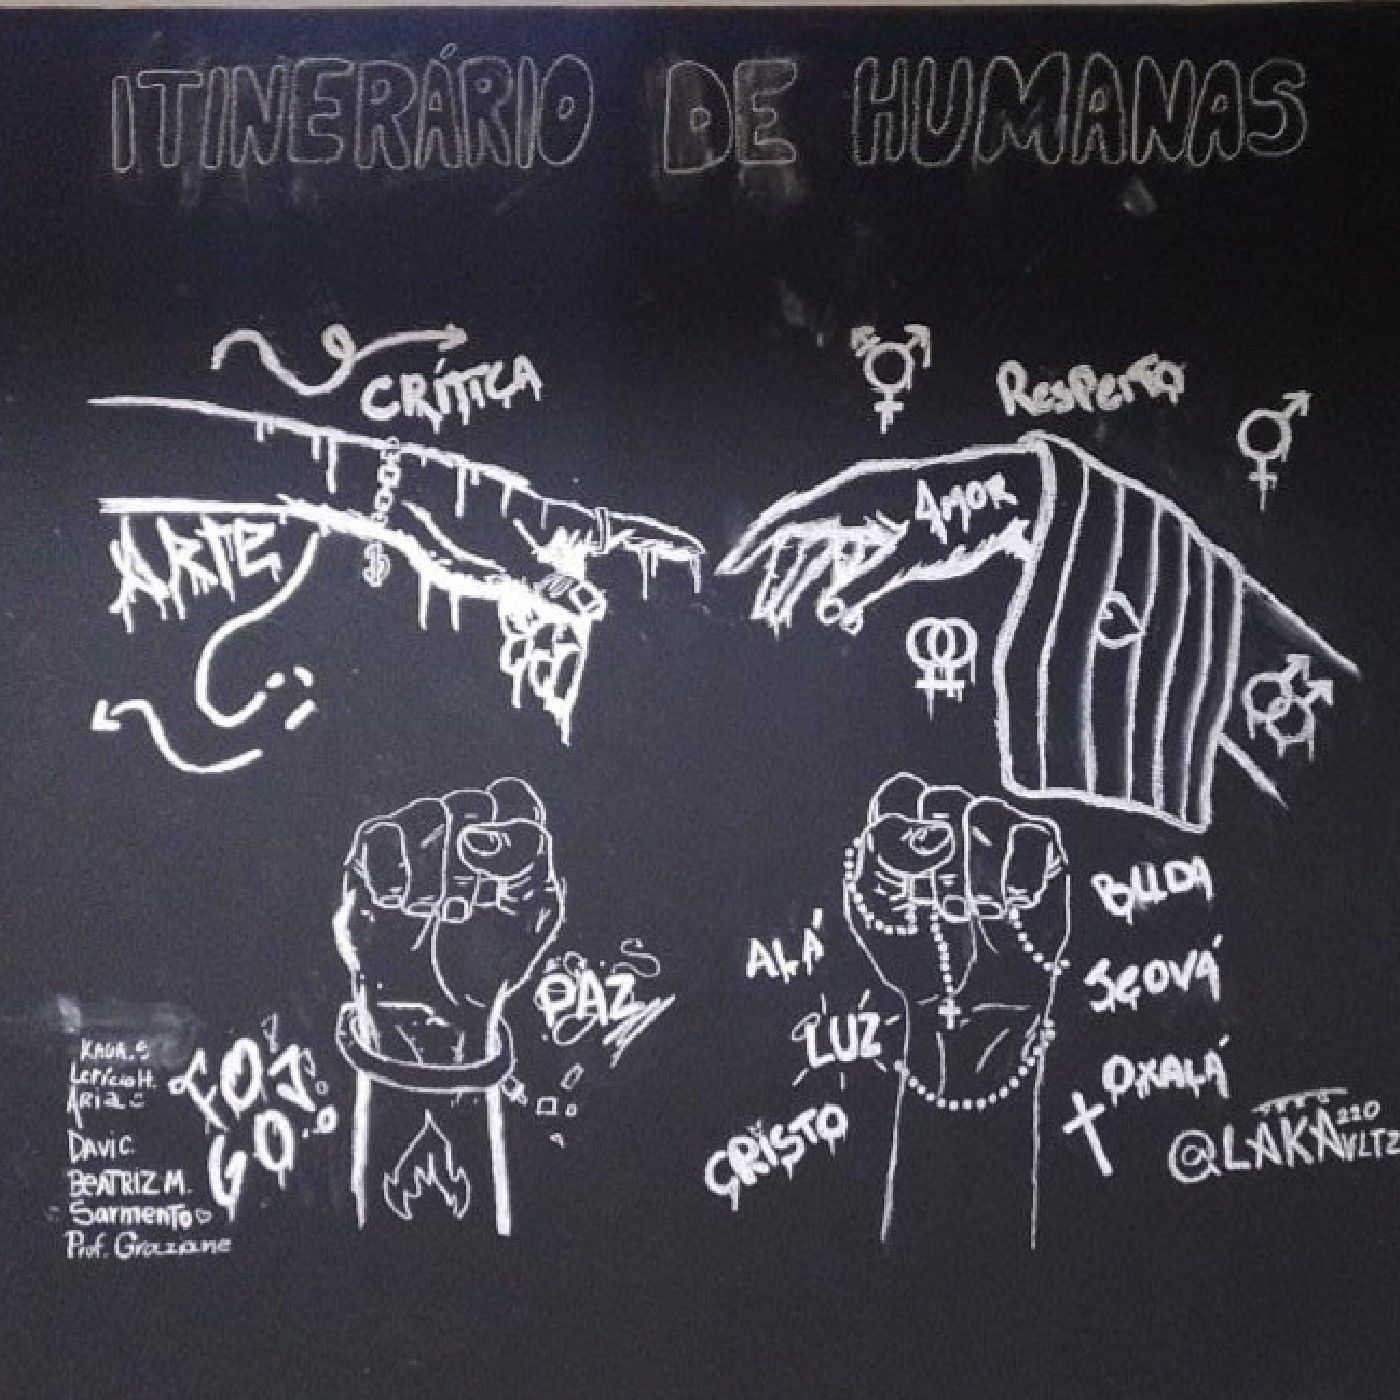 ITINERÁRIO DE HUMANAS
CRÍTICA
RESPEITO
AMOR
ARTE
$
BUDA
ALÁ
PAZ
JEOVÁ
LUZ
OXALÁ
CRISTO
FOGO
@LAKA
220
VLTZ
DAVI C.
BEATRIZ M.
Sarmento
Prof. Graziane